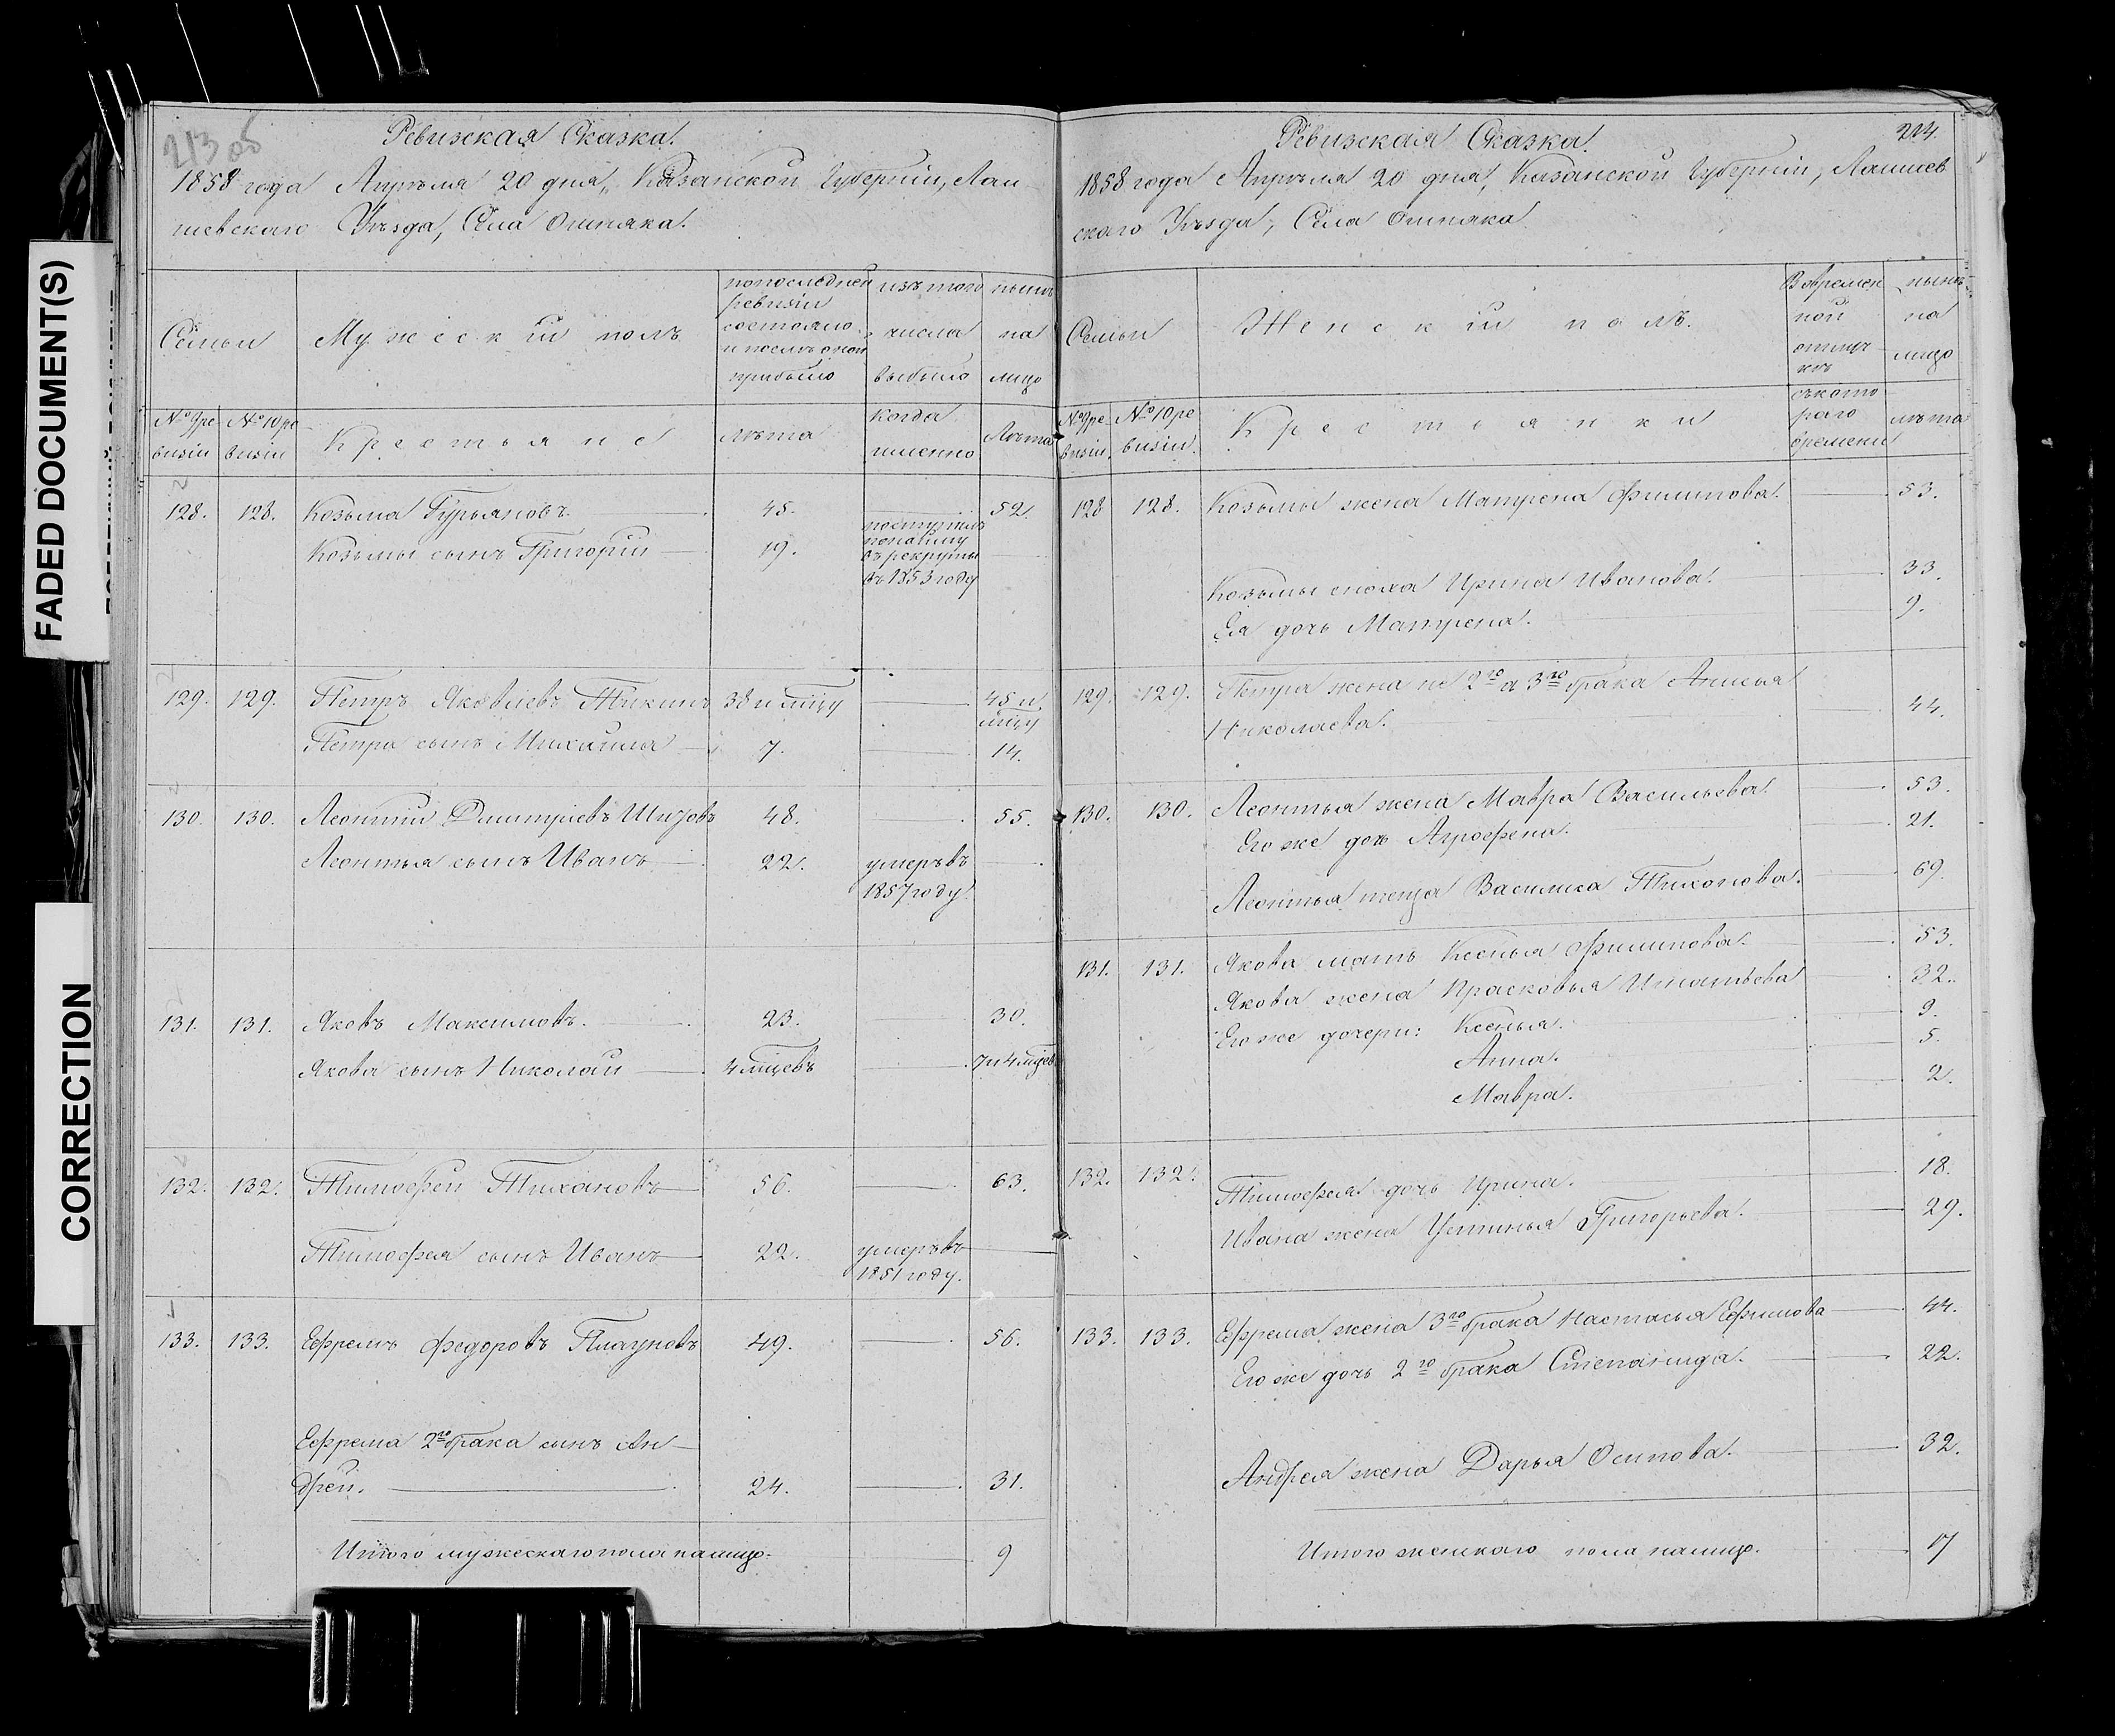 FADED DOCUMENT(S)
CORRECTION
213 об
Ревизская Сказка.
1858 года Апрѣля 20 дня, Казанской Губерніи, Лаи
шевскаго Уѣзда, Села Ошняка.
Семьи
Мужескій полъ
по последней
ревизіи
состояло
и послѣ оной
прибыло
изъ того
числа
выбыло
нынѣ
на
лицо
№ 9 ре
визіи
№ 10 ре
визіи
Крестьяне
Лѣта
когда
именно
Лѣта
128. 128. Козьма Гурьяновъ 45. 52.
Козьмы сынъ Григорій 19.
поступилъ
по найму
въ рекруты
въ 1853 году
129. 129. Петръ Яковлевъ Тикинъ 38 и мцу 45 и
мцу
Петра сынъ Михайла 7. 14.
130. 130. Леонтій Дмитріевъ 48. 55.
Леонтья сынъ Иванъ 22. умеръ въ
1857 году.
131. 131. Яковъ Максимовъ. 23. 30.
Якова сынъ Николай 4 мцевъ 7 и 4 мцев
132. 132. Тимофей Тихановъ 56. 63.
Тимофея сынъ Иванъ 22. умеръ въ
1851 году.
133. 133. Ефремъ Федоровъ Плауновъ 49. 56.
Ефрема 2го брака сынъ Ан
дрей. 24. 31.
Итого мужескаго пола налицо. 9
214.
Ревизская Сказка.
1858 года Апрѣля 20 дня, Казанской Губерніи, Лаишев
скаго Уѣзда, Села Ошняка
Семьи
Женскій полъ.
Во времен
ной
отлуч
кѣ
нынѣ
на
лицо
№ 9 ре
визіи.
№ 10 ре
визіи.
Крестьянки
съ кото
раго
времени
лѣта
128 128. Козьмы жена Матрена Филипова. 53.
Козьмы сноха Ирина Иванова. 33.
Ея дочь Матрена. 9.
129. 129. Петра жена не 2го а 3го брака Анисья
Николаева. 44.
130. 130. Леонтья жена Мавра Васильева. 53.
Его же дочь Агрофена. 21.
Леонтья теща Василиса Тихонова. 69.
131. 131. Якова мать Ксенья Филипова. 53.
Якова жена Прасковья Игнатьева 32.
Его же дочери: Ксенья. 9.
Анна. 5.
Мавра. 2.
132. 132. Тимофея дочь Ирина. 18.
Ивана жена Устинья Григорьева. 29.
133. 133. Ефрема жена 3го брака Настасья Ефимова 44.
Его же дочь 2го брака Степанида. 22.
Андрея жена Дарья Осипова. 32.
Итого женскаго пола налицо. 17